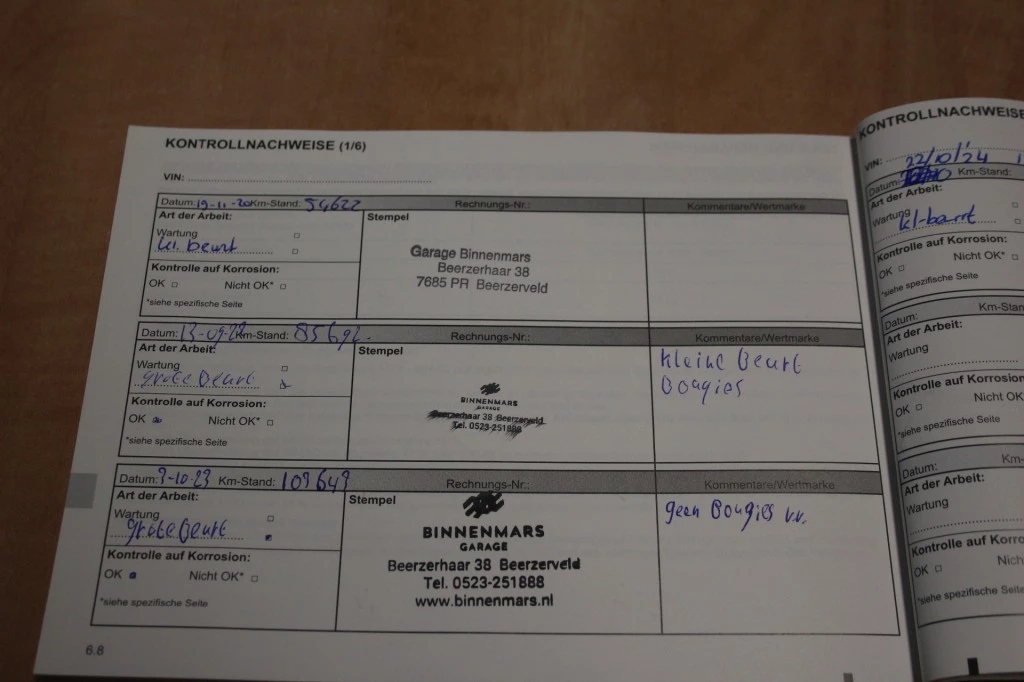 KONTROLLNACHWEISE (1/6)
VIN:
Datum: 19-11-20 Km-Stand: 54622 Rechnungs-Nr.: Kommentare/Wertmarke
Art der Arbeit: Stempel
Wartung
kl. beurt
Kontrolle auf Korrosion:
OK Nicht OK*
*siehe spezifische Seite
Garage Binnenmars
Beerzerhaar 38
7685 PR Beerzerveld
Datum: 13-09-22 Km-Stand: 85692 Rechnungs-Nr.: Kommentare/Wertmarke
Art der Arbeit: Stempel
Wartung
grote Beurt
Kontrolle auf Korrosion:
OK Nicht OK*
*siehe spezifische Seite
BINNENMARS
GARAGE
Beerzerhaar 38 Beerzerveld
Tel. 0523-251888
kleine Beurt
Bougies
Datum: 3-10-23 Km-Stand: 109649 Rechnungs-Nr.: Kommentare/Wertmarke
Art der Arbeit: Stempel
Wartung
grote Beurt
Kontrolle auf Korrosion:
OK Nicht OK*
*siehe spezifische Seite
BINNENMARS
GARAGE
Beerzerhaar 38 Beerzerveld
Tel. 0523-251888
www.binnenmars.nl
geen Bougies v.v.
6.8
KONTROLLNACHWEISE
VIN:
22/10/'24
Datum: Km-Stand:
Art der Arbeit:
Wartung
kl-
Kontrolle auf Korrosion:
OK Nicht OK*
*siehe spezifische Seite
Datum: Km-Stand:
Art der Arbeit:
Wartung
Kontrolle auf Korrosion:
OK Nicht OK
*siehe spezifische Seite
Datum: Km-
Art der Arbeit:
Wartung
Kontrolle auf Korrosion:
OK Nich
*siehe spezifische Seite